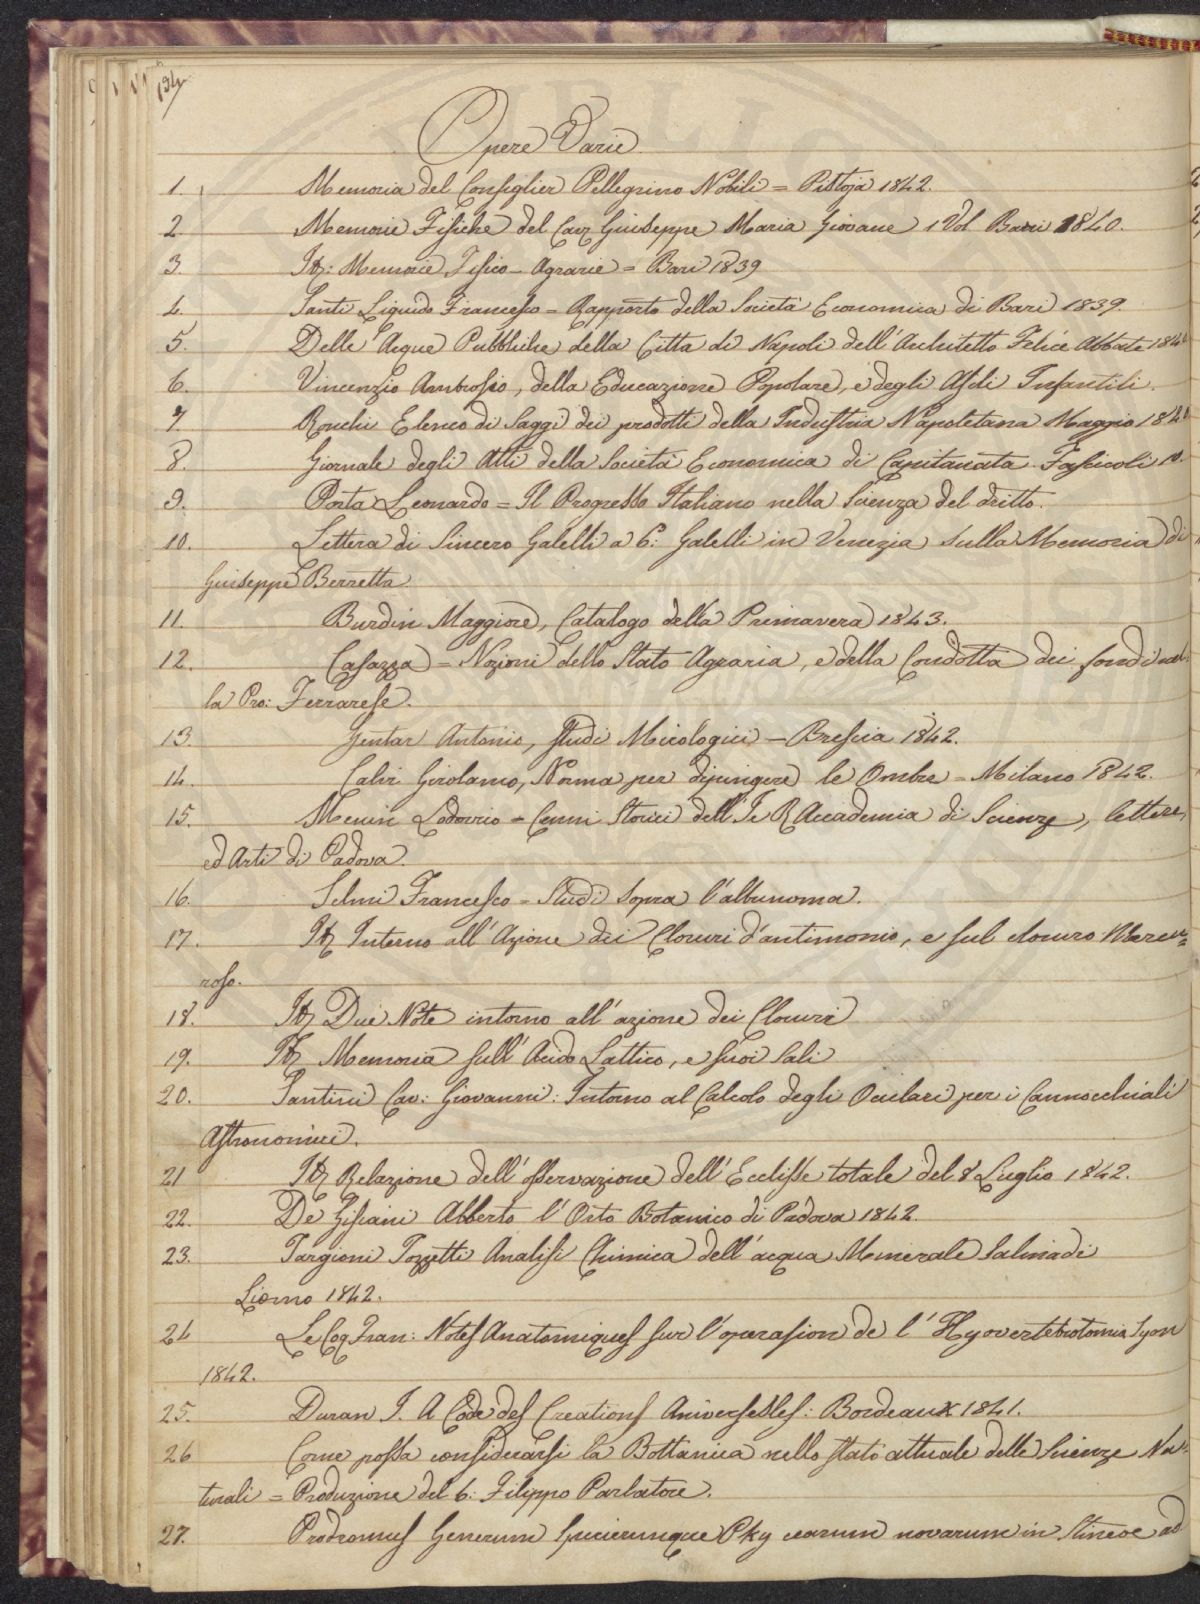 194
Opere Varie
1. Memoria del Consiglier Pellegrino Nobili = Pistoja 1842.
2. Memorie Fisiche del Cav Giuseppe Maria Giovane 1 Vol Bari 1840.
3. Id: Memorie Fisico-Agrarie = Bari 1839
4. Santi Liquido Francesco = Rapporto della Società Economica di Bari 1839.
5. Delle Acque Pubbliche della Citta di Napoli dell'Architetto Felice Abbate 184
6. Vincenzio Ambrosio, della Educazione Popolare, e degli Asili Infantili.
7 Ronchi Elenco di Saggi dei prodotti della Industria Napoletana Maggio 184
8. Giornale degli Atti della Società Economica di Capitanata Fascicoli 10.
9. Porta Leonardo = Il Progresso Italiano nella Scienza del dritto.
10. Lettera di Sincero Galelli a G: Galelli in Venezia sulla Memoria di
Giuseppe Berretta
11. Burdin Maggiore, Catalogo della Primavera 1843.
12. Casazza = Nozioni dello Stato Agraria, e della Condotta dei fondi nel
la Pro: Ferrarese.
13. Antonio, Studi Micologici - Brescia 1842.
14. Calvi Girolamo, Norma per dipingere le Ombre = Milano 1842.
15. Menin Lodovico = Cenni Storici dell'Ie R Accademia di Scienze, lettere,
ed Arti di Padova.
16. Selmi Francesco = Studi sopra l'albunoma.
17. Id Interno all'Azione dei Cloruri d'antimonio, e sul cloruro Mercu=
roso.
18. Id Due Note intorno all'azione dei Cloruri
19. Id Memoria sull'Acido Lattico, e suoi Sali
20. Santini Cav: Giovanni: Intorno al Calcolo degli Oculari per i Cannocchiali
Astronomici.
21 Id Relazione dell'osservazione dell'Ecclisse totale del 8 Luglio 1842.
22. De Visiani Abberto l'Orto Botanico di Padova 1842.
23. Targioni Tozzetti Analisi Chimica dell'acqua Minerale Salina di
Liorno 1842.
24 Le Coq Fran: Notes Anatomiques sur l'operasion de l'Hyovertebrotomia Lyon
1842.
25. Duran J. A Code des Creations Aniverselles: Bordeaux 1841.
26 Come possa considerarsi la Bottanica nello stato attuale delle Scienze Na
turali = Produzione del G: Filippo Parlatore.
27. Prodromus Generum Specierumque Phy cearum novarum in Itinere ad